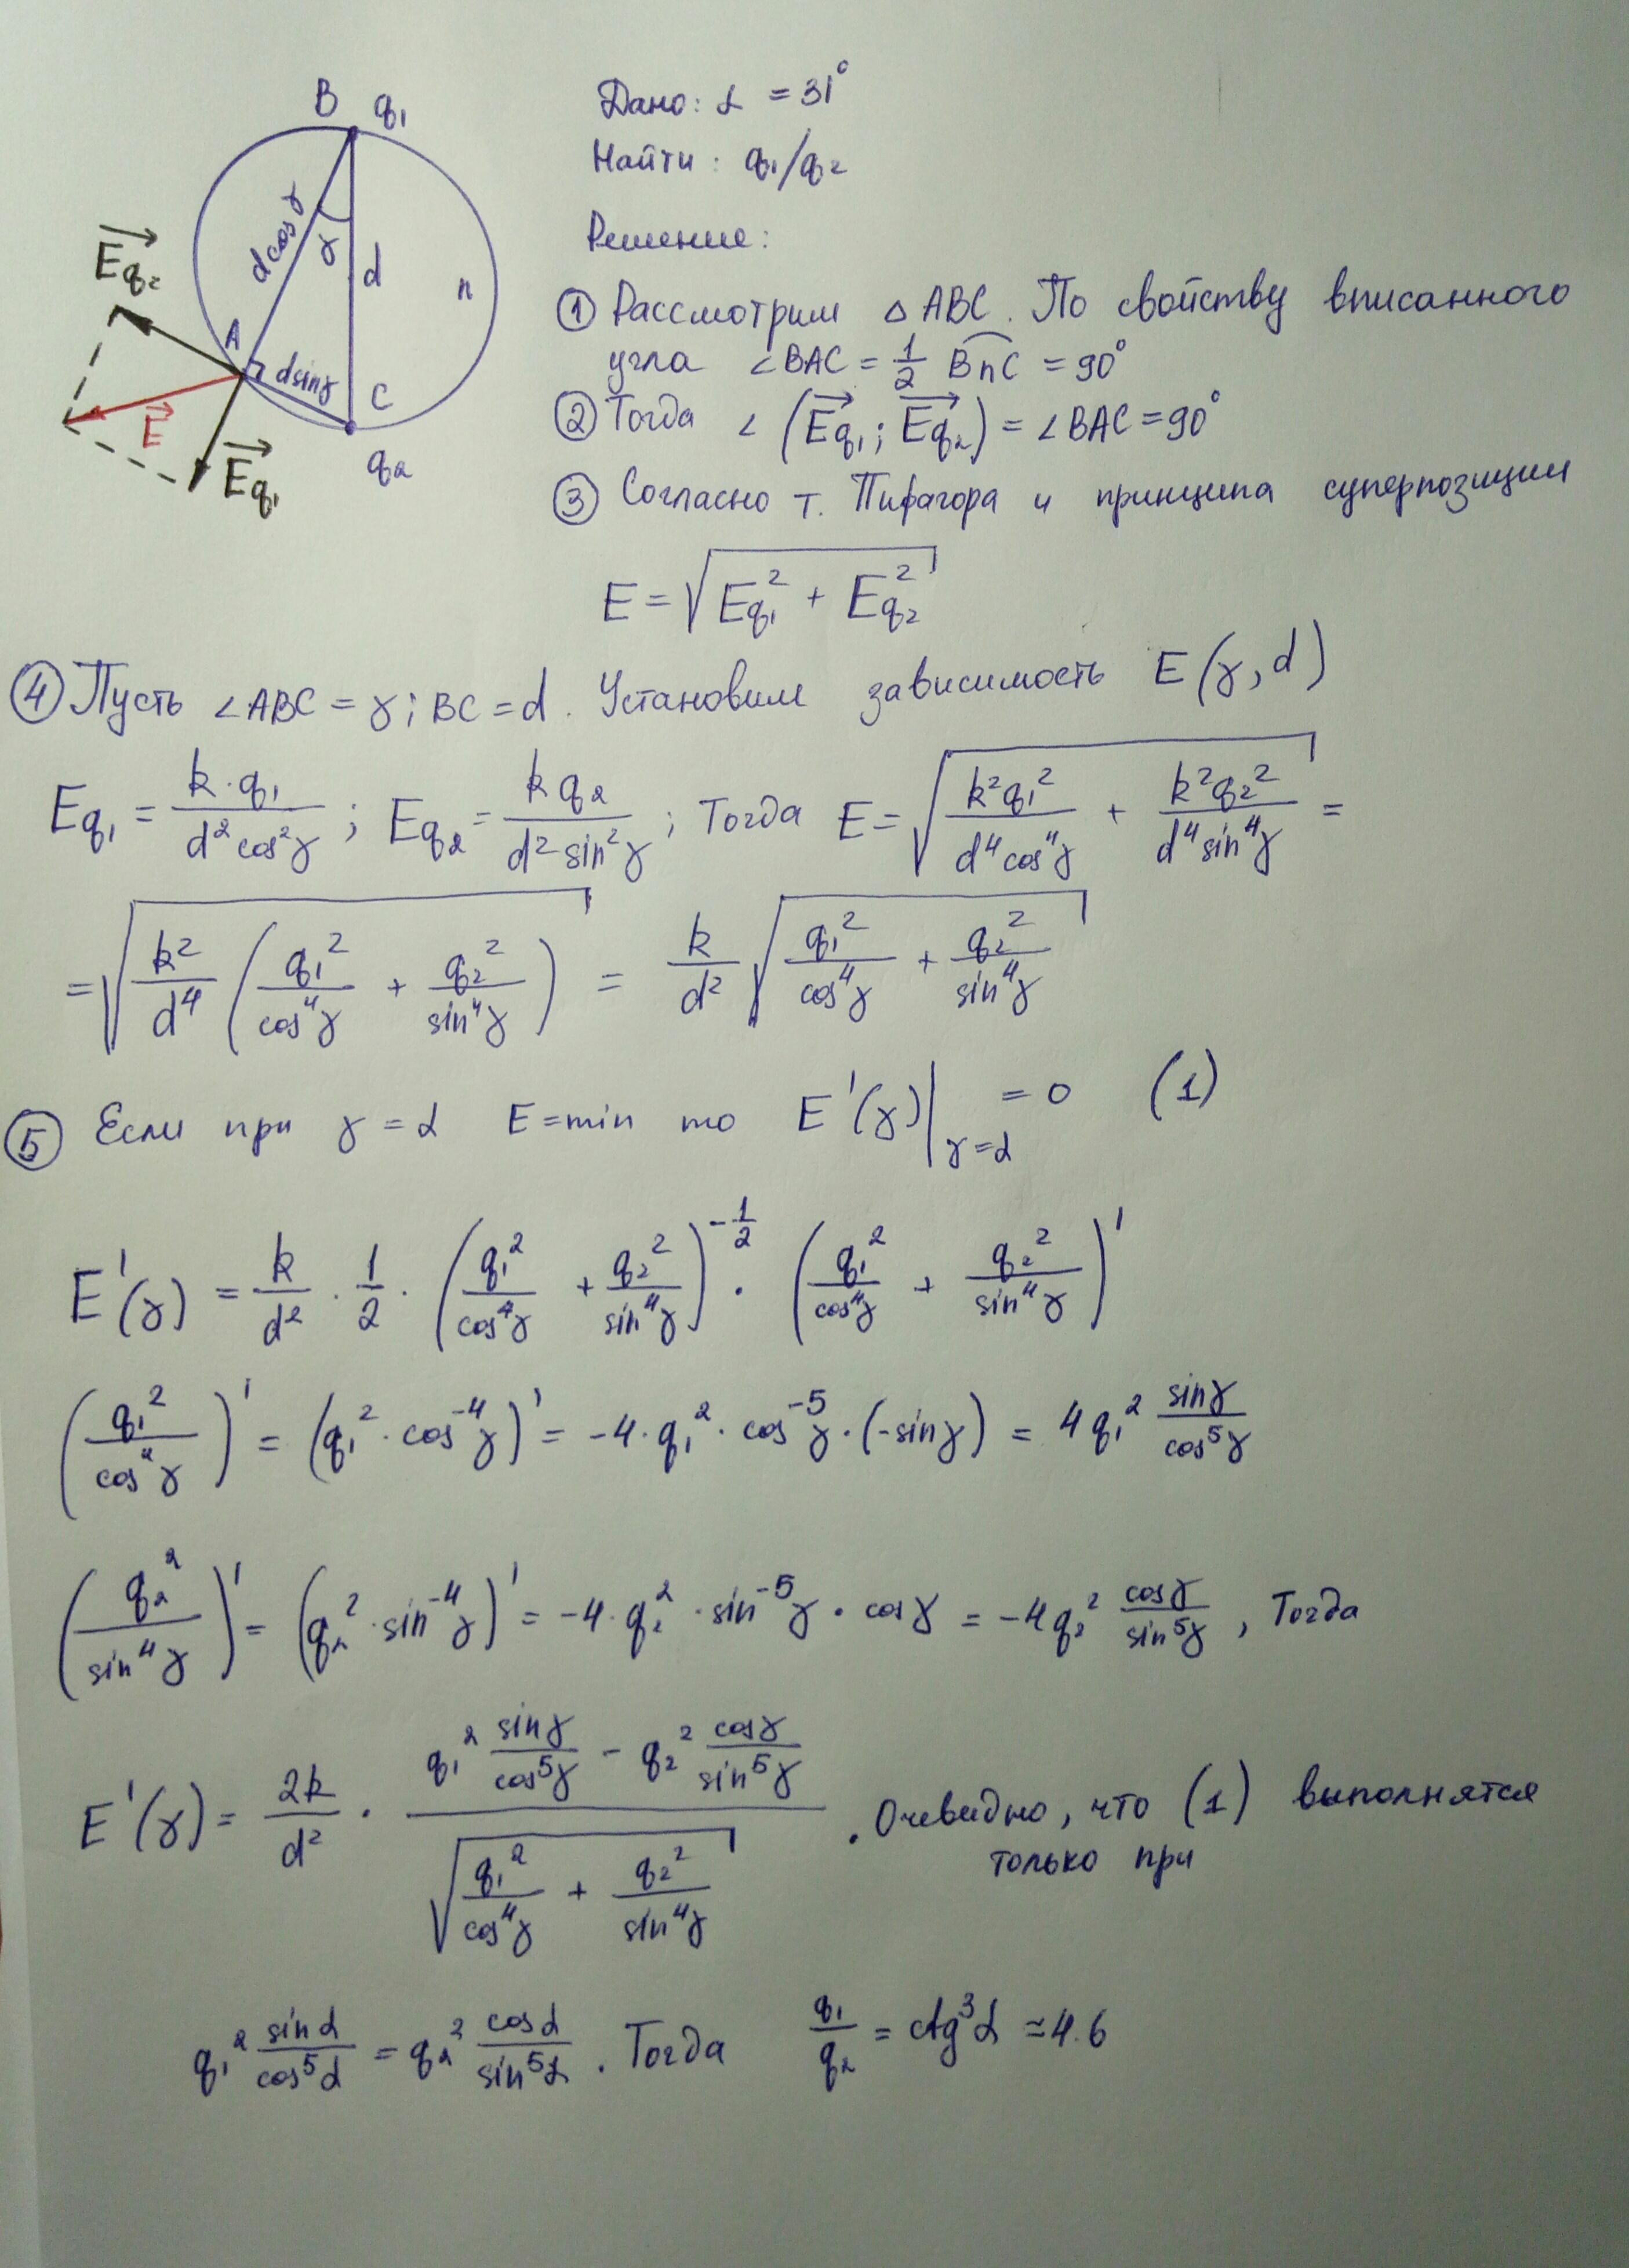 B q₁
d cos γ
γ
d
n
A
d sin γ
C
q₂
E⃗q₂
E⃗
E⃗q₁
Дано: α = 31°
Найти: q₁/q₂
Решение:
① Рассмотрим △ ABC. По свойству вписанного
угла ∠BAC = 1/2 BnC = 90°
② Тогда ∠ (E⃗q₁; E⃗q₂) = ∠BAC = 90°
③ Согласно т. Пифагора и принципа суперпозиции
E = √(Eq₁² + Eq₂²)
④ Пусть ∠ABC = γ; BC = d. Установим зависимость E(γ, d)
Eq₁ = k·q₁/(d² cos²γ); Eq₂ = kq₂/(d² sin²γ); Тогда E = √(k²q₁²/(d⁴cos⁴γ) + k²q₂²/(d⁴sin⁴γ)) =
= √(k²/d⁴ (q₁²/cos⁴γ + q₂²/sin⁴γ)) = k/d² √(q₁²/cos⁴γ + q₂²/sin⁴γ)
⑤ Если при γ = α E = min то E'(γ)|γ=α = 0 (1)
E'(γ) = k/d² · 1/2 · (q₁²/cos⁴γ + q₂²/sin⁴γ)^(-1/2) · (q₁²/cos⁴γ + q₂²/sin⁴γ)'
(q₁²/cos⁴γ)' = (q₁² · cos⁻⁴γ)' = -4·q₁² · cos⁻⁵γ · (-sinγ) = 4q₁² sinγ/cos⁵γ
(q₂²/sin⁴γ)' = (q₂² · sin⁻⁴γ)' = -4·q₂² · sin⁻⁵γ · cosγ = -4q₂² cosγ/sin⁵γ, Тогда
E'(γ) = 2k/d² · (q₁² sinγ/cos⁵γ - q₂² cosγ/sin⁵γ)/√(q₁²/cos⁴γ + q₂²/sin⁴γ). Очевидно, что (1) выполнятся
только при
q₁² sinα/cos⁵α = q₂² cosα/sin⁵α. Тогда q₁/q₂ = ctg³α ≃ 4.6